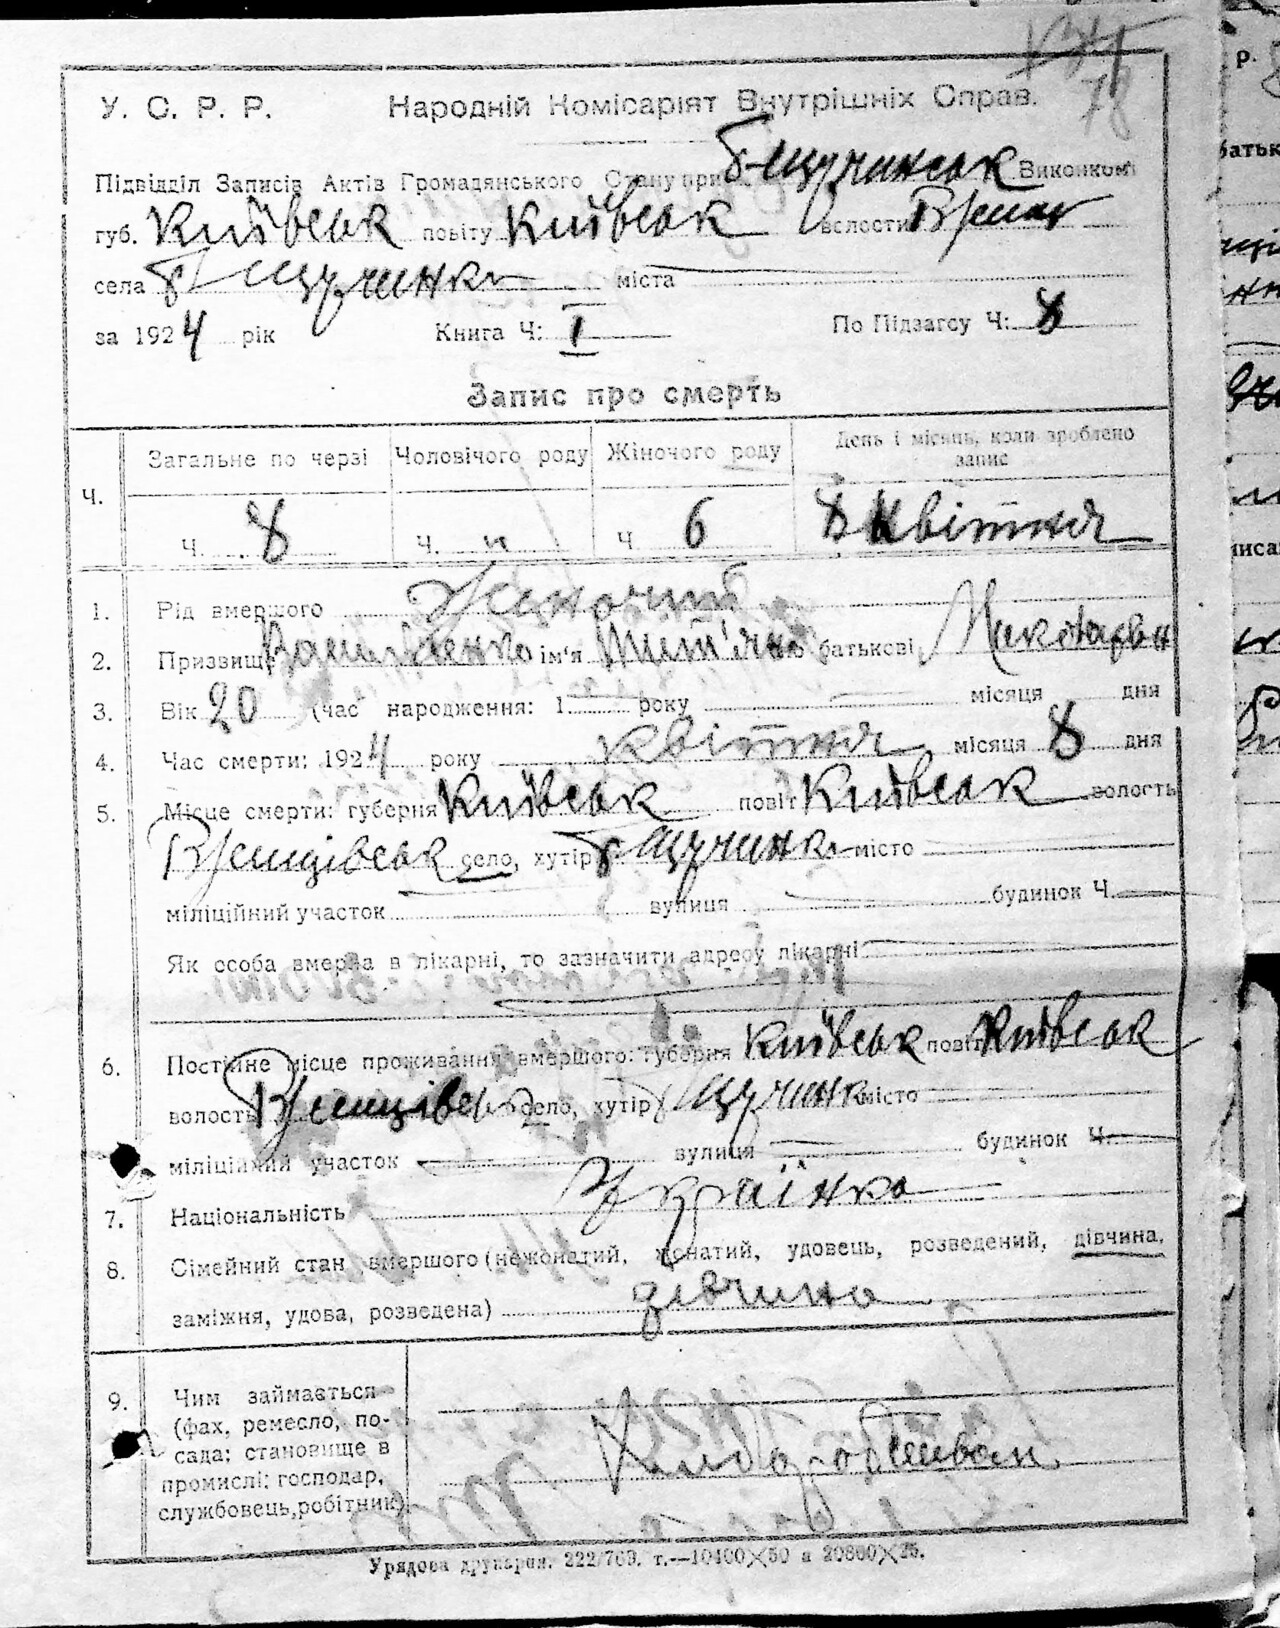 78
У. С. Р. Р. Народній Комісаріят Внутрішніх Справ.
Підвідділ Записів Актів Громадянського Стану при Щучинськ Виконкомі
губ. Київськ повіту Київськ волости
села Щучинка міста
за 1924 рік Книга Ч: I По Підзагсу Ч: 8
Запис про смерть
Ч. Загальне по черзі Чоловічого роду Жіночого роду День і місяць, коли зроблено запис
Ч. 8 Ч. „ Ч 6 8 Квітня
1. Рід вмершого Жіночий
2. Призвище ім'я Тит'яна по батькові
3. Вік 20 (час народження: 1 року місяця дня
4. Час смерти: 1924 року квітня місяця 8 дня
5. Місце смерти: губерня Київськ повіт Київськ волость
Ржищівськ село, хутір Щучинка місто
міліційний участок вулиця будинок Ч.
Як особа вмерла в лікарні, то зазначити адресу лікарні
6. Постійне місце проживання вмершого: губерня Київськ повіт Київськ
волость Ржищівськ село, хутір Щучинка місто
міліційний участок вулиця будинок Ч.
7. Національність Українка
8. Сімейний стан вмершого (нежонатий, жонатий, удовець, розведений, дівчина,
заміжня, удова, розведена) дівчина
9. Чим займається
(фах, ремесло, по-
сада; становище в
промислі: господар,
службовець, робітник) Хліборобством
Урядова друкарня. 222/763. т.—10400×50 а 20800×25.